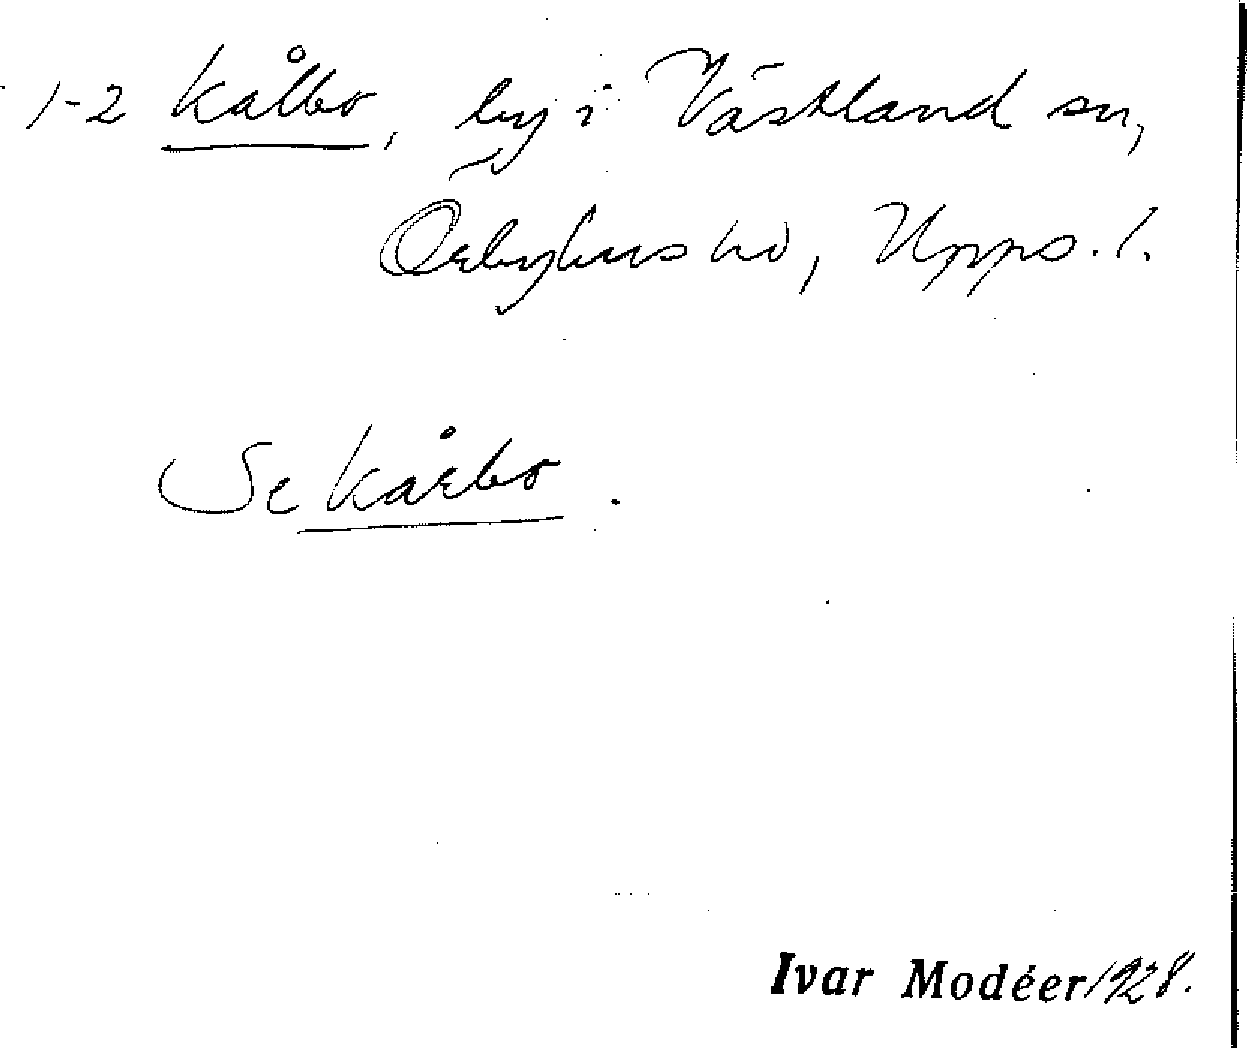 1-2 Kålbo, by i Västland sn,
Örbyhus hd, Upps. l.
Se Kårbo.
Ivar Modéer 1928.